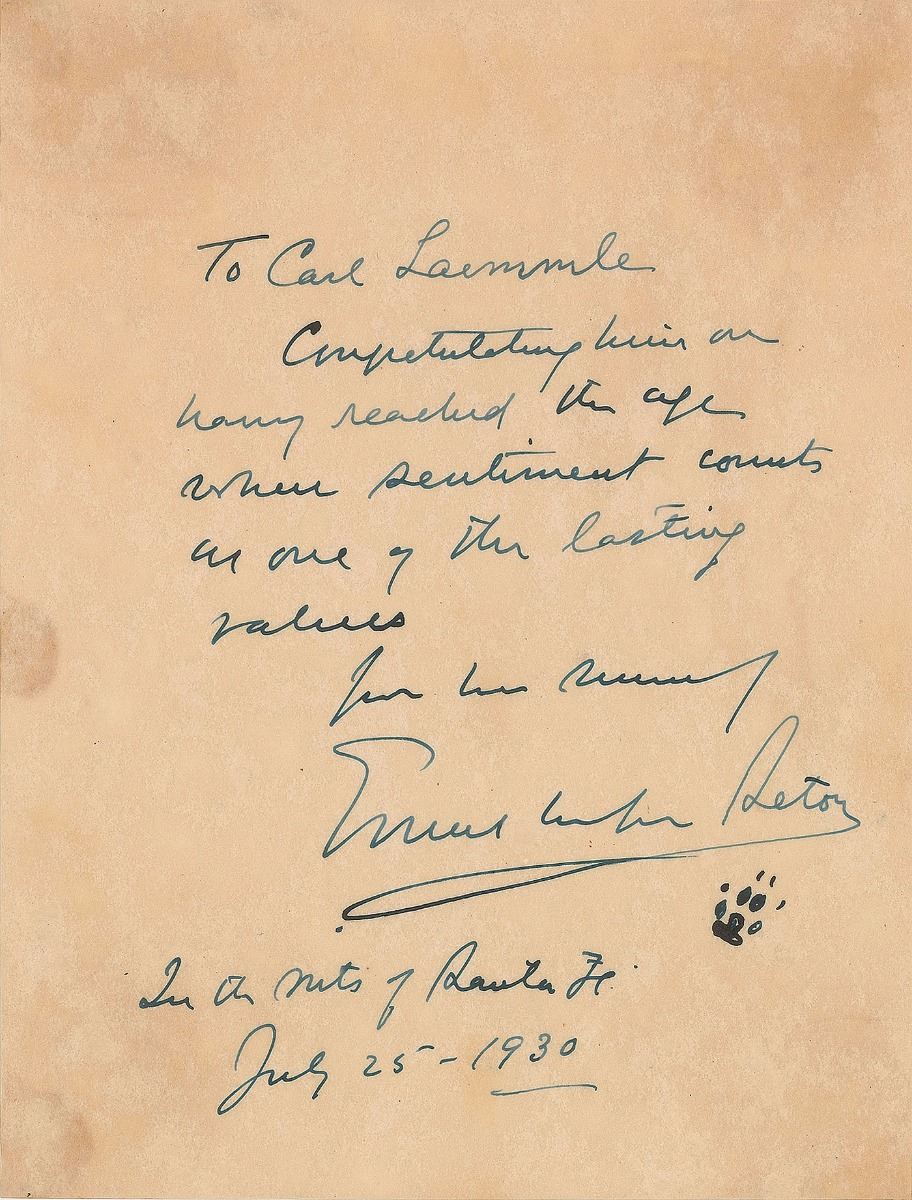 To Carl Laemmle
Congratulating him on
having reached the age
when sentiment counts
as one of the lasting
values
from his
Ernest Thompson Seton
In the Mts of Santa Fe.
July 25 - 1930